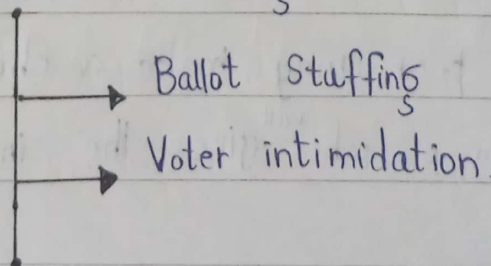 Ballot Stuffing
Voter intimidation.